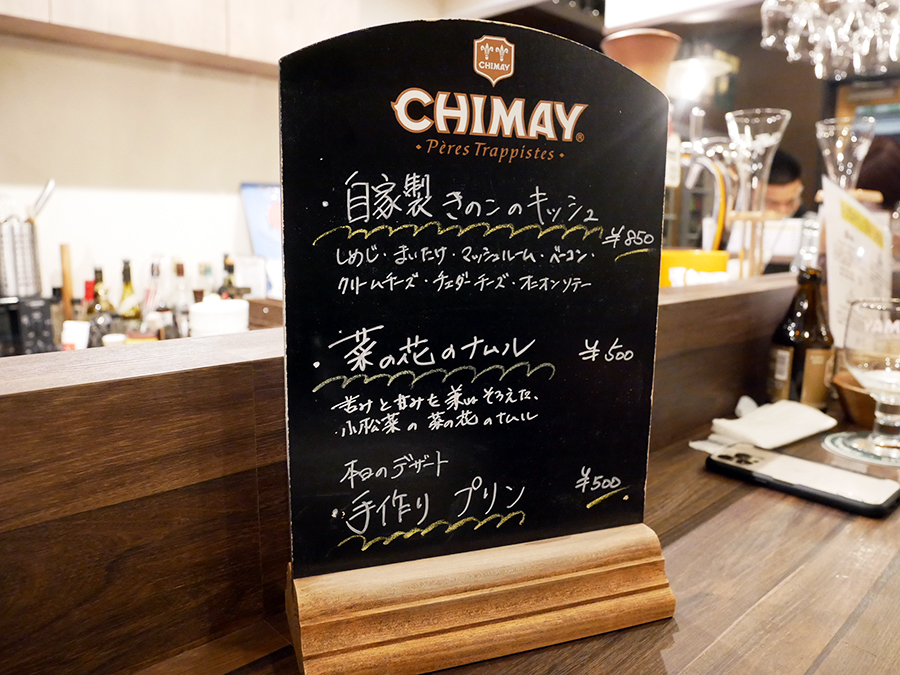 CHIMAY
CHIMAY®
・Pères Trappistes・
・自家製 きのこのキッシュ
¥850
しめじ・まいたけ・マッシュルーム・ベーコン・
クリームチーズ・チェダーチーズ・オニオンソテー
・菜の花のナムル ¥500
苦みと甘みを兼ねそろえた、
小松菜の菜の花のナムル
本日のデザート
・手作り プリン ¥500
YAM